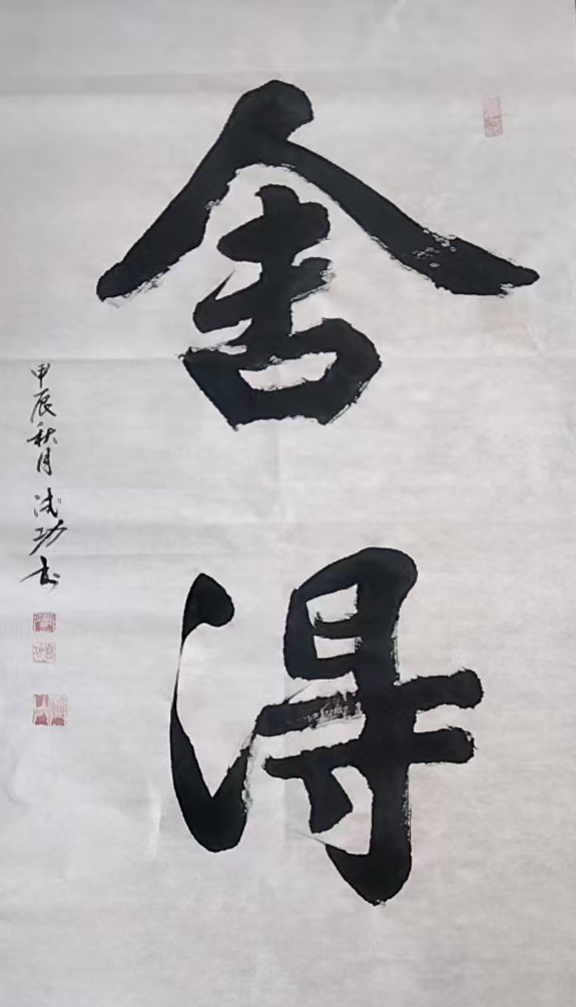 舍得
甲辰秋月 成功书